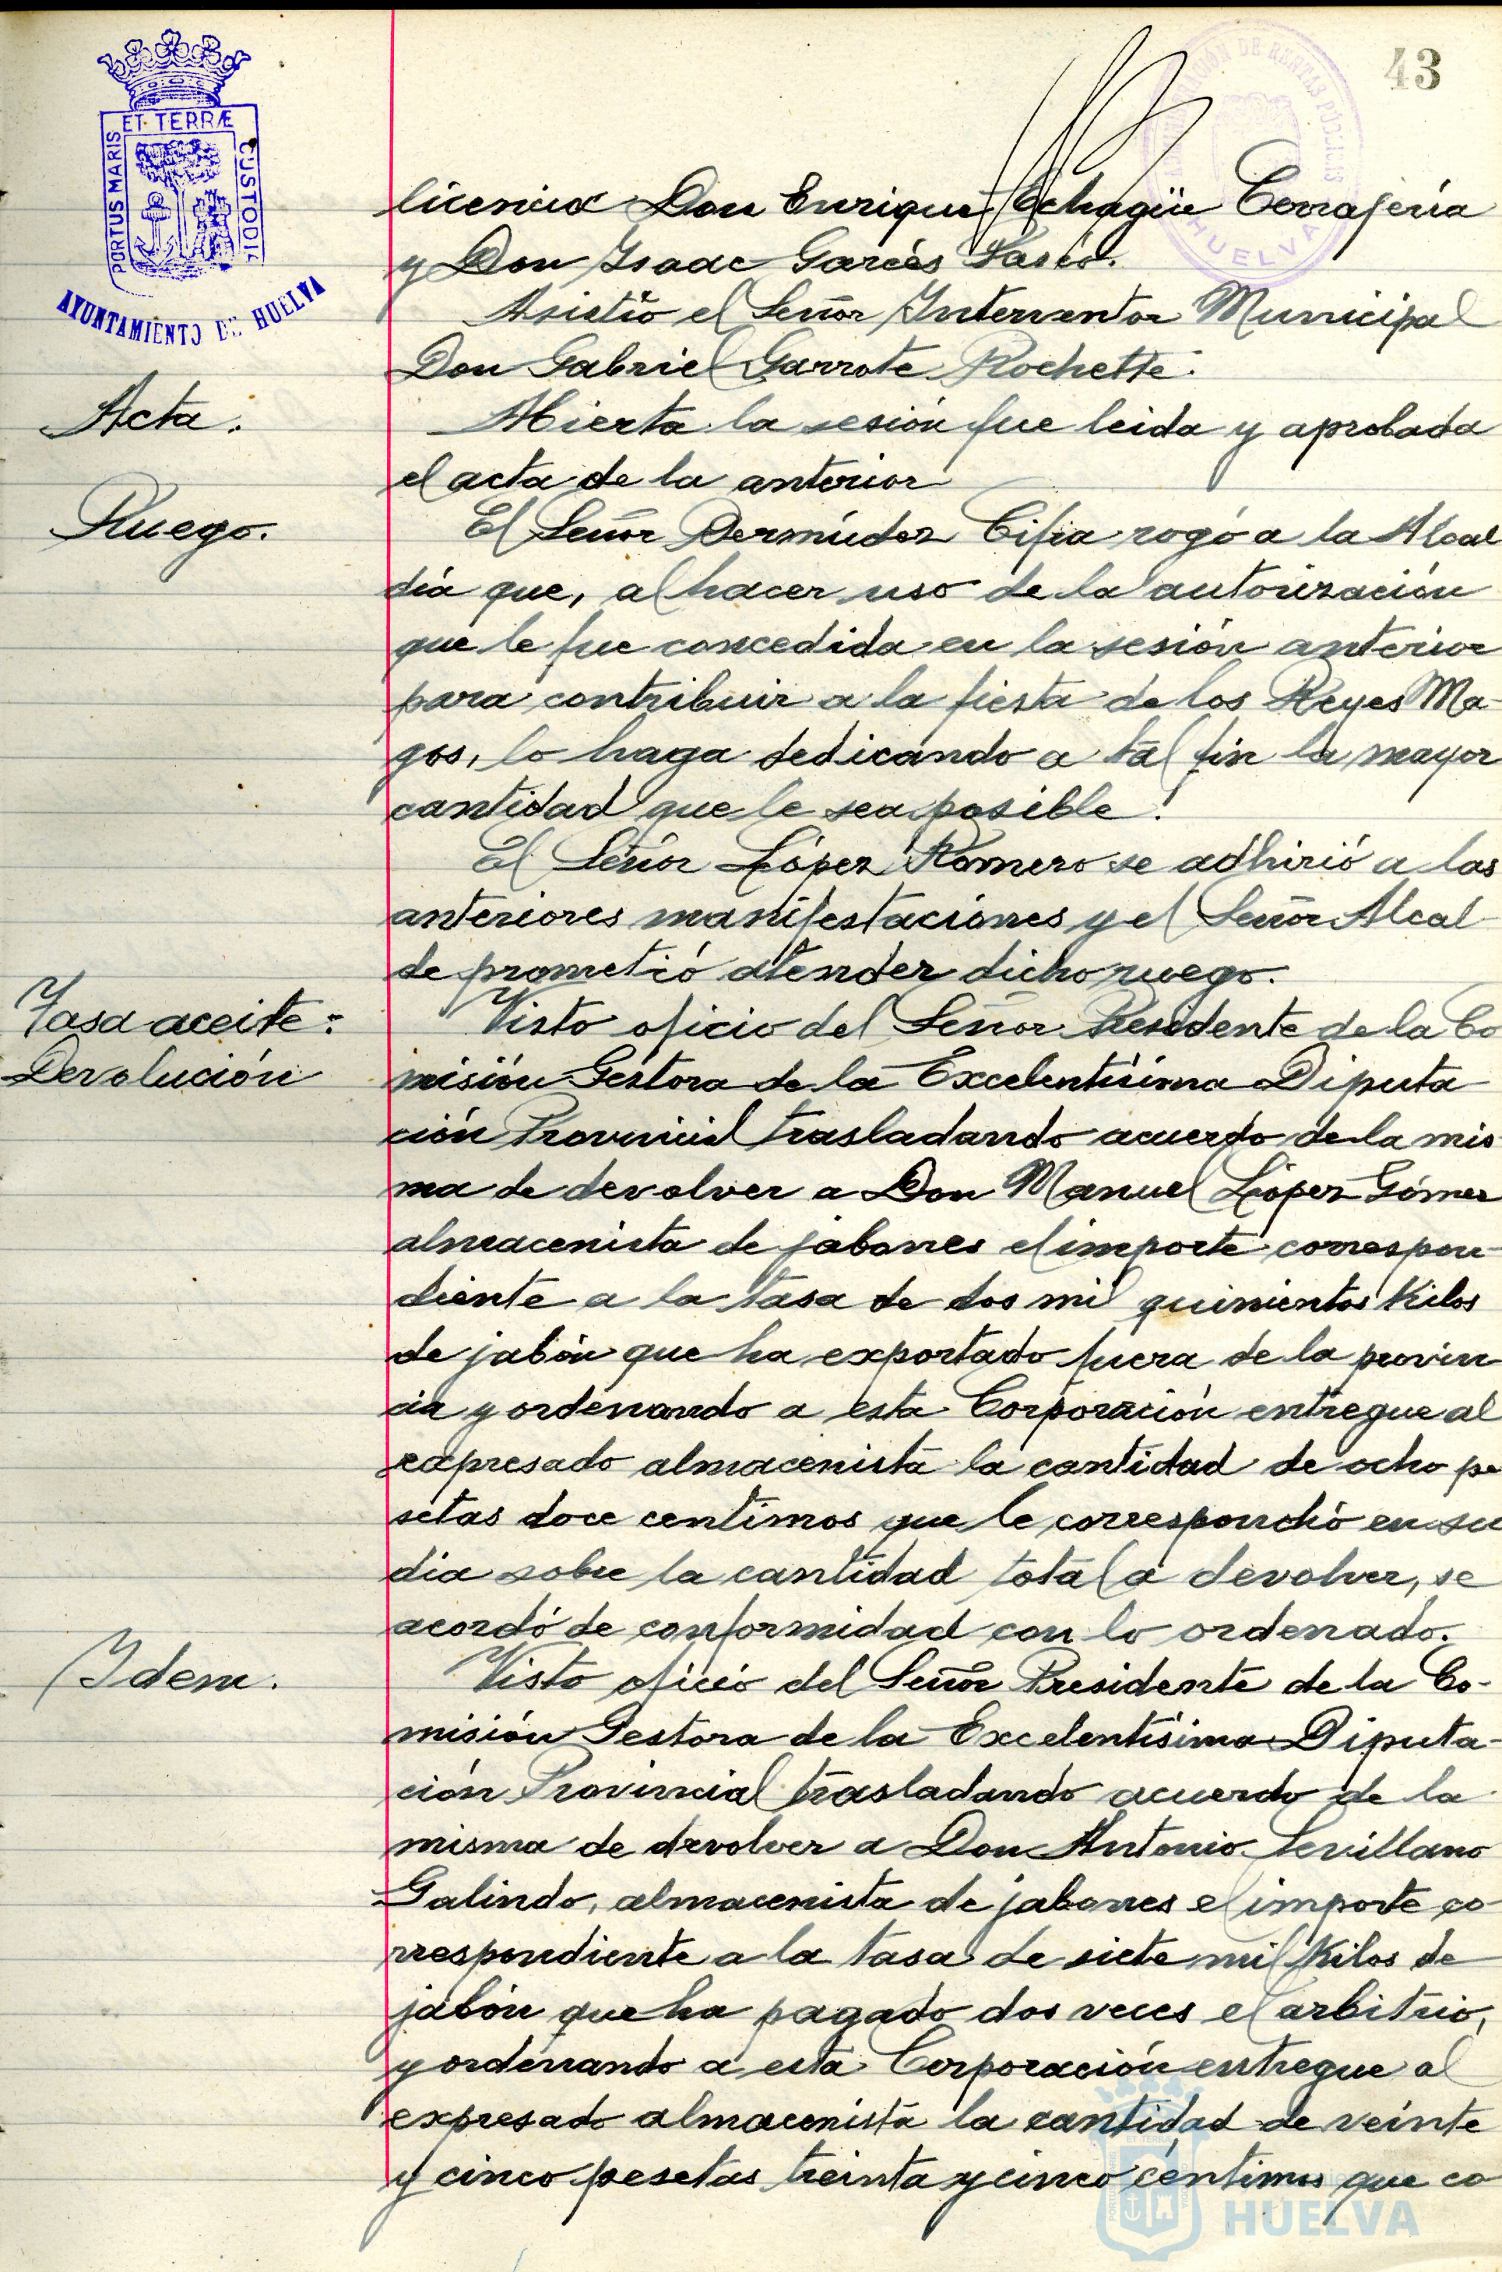 43
ET TERRÆ
PORTUS MARIS
CUSTODIÆ
AYUNTAMIENTO DE HUELVA
HUELVA
licencia Don Enrique Echagüe Cerrajería
y Don Isaac Garcés
Asistió el Señor Interventor Municipal
Don Gabriel Garrote Rochette.
Acta.
Abierta la sesión fue leida y aprobada
el acta de la anterior
Ruego.
El Señor Bermúdez Cifia rogó a la Alcal
día que, al hacer uso de la autorización
que le fue concedida en la sesión anterior
para contribuir a la fiesta de los Reyes Ma-
gos, lo haga dedicando a tal fin la mayor
cantidad que le sea posible.
El Señor López Romero se adhirió a las
anteriores manifestaciones y el Señor Alcal-
de prometió atender dicho ruego.
Tasa aceite:
Devolución
Visto oficio del Señor Presidente de la Co
misión Gestora de la Excelentísima Diputa
ción Provincial trasladando acuerdo de la mis
ma de devolver a Don Manuel López Gómez
almacenista de jabones el importe correspon-
diente a la tasa de dos mil quinientos Kilos
de jabón que ha exportado fuera de la provin
cia y ordenando a esta Corporación entregue al
expresado almacenista la cantidad de ocho pe
setas doce centimos que le correspondió en su
dia sobre la cantidad total a devolver, se
acordó de conformidad con lo ordenado.
Idem.
Visto oficio del Señor Presidente de la Co-
misión Gestora de la Excelentísima Diputa-
ción Provincial trasladando acuerdo de la
misma de devolver a Don Antonio Sevillano
Galindo, almacenista de jabones el importe co-
rrespondiente a la tasa de siete mil Kilos de
jabón que ha pagado dos veces el arbitrio,
y ordenando a esta Corporación entregue al
expresado almacenista la cantidad de veinte
y cinco pesetas treinta y cinco céntimos que co
HUELVA